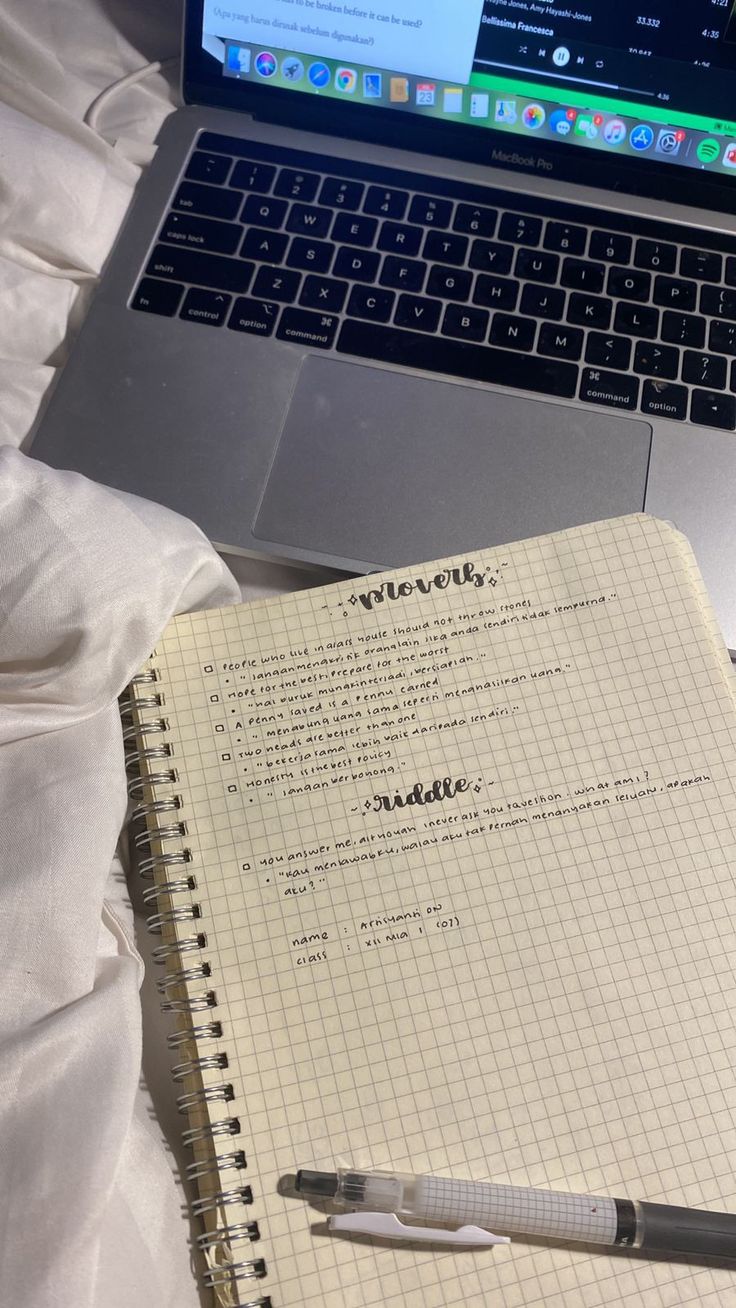 to be broken before it can be used?
(Apa yang harus dirusak sebelum digunakan?)
Jones, Amy Hayashi-Jones
Bellissima Francesca
33.332
4:35
4:36
23
MacBook Pro
! 1 @ 2 # 3 $ 4 % 5 ^ 6 & 7 * 8 ( 9 ) 0
tab Q W E R T Y U I O P
caps lock A S D F G H J K L
shift Z X C V B N M < , > . ? /
fn control option command command option
proverb
People who live in glass house should not throw stones
" Jangan mengkritik orang lain jika anda sendiri tidak sempurna."
Hope for the best, prepare for the worst
" Hal buruk mungkin terjadi, bersiaplah."
A penny saved is a penny earned
" menabung uang sama seperti menghasilkan uang."
Two heads are better than one
" bekerja sama lebih baik daripada sendiri."
Honesty is the best policy
" Jangan berbohong."
riddle
you answer me, although i never ask you question. what am i?
"kau menjawabku, walau aku tak pernah menanyakan sesuatu, apakah
aku?"
name :
class : XII MIA 1 (07)